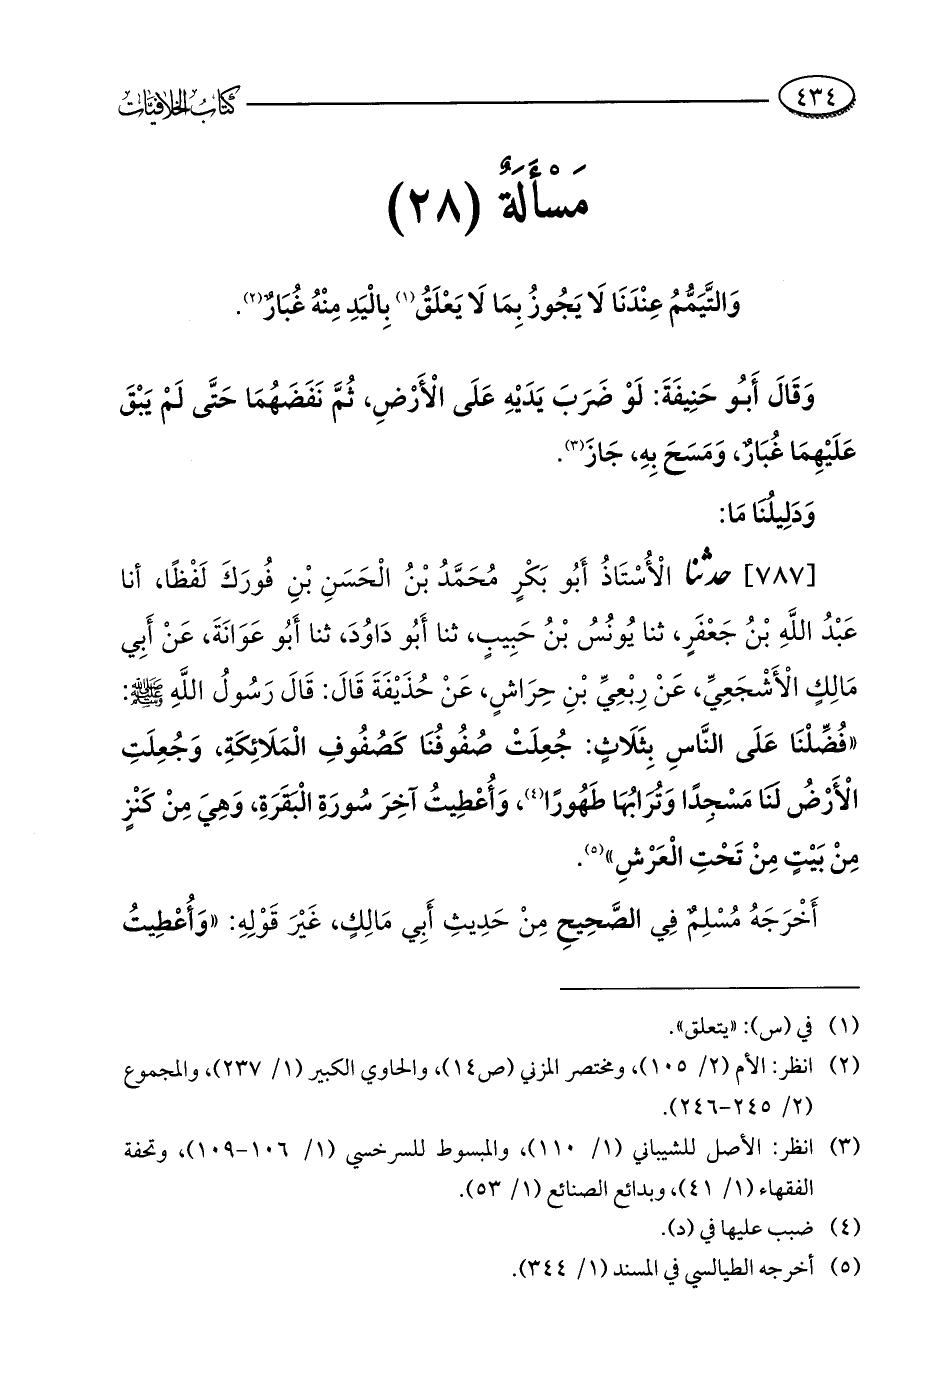 ٤٣٤
كتاب الخلافيات
مَسْأَلَةٌ (٢٨)
وَالتَّيَمُّمُ عِنْدَنَا لَا يَجُوزُ بِمَا لَا يَعْلَقُ(١) بِالْيَدِ مِنْهُ غُبَارٌ(٢).
وَقَالَ أَبُو حَنِيفَةَ: لَوْ ضَرَبَ يَدَيْهِ عَلَى الْأَرْضِ، ثُمَّ نَفَضَهُمَا حَتَّى لَمْ يَبْقَ
عَلَيْهِمَا غُبَارٌ، وَمَسَحَ بِهِ، جَازَ(٣).
وَدَلِيلُنَا مَا:
[٧٨٧] حدثنا الْأُسْتَاذُ أَبُو بَكْرٍ مُحَمَّدُ بْنُ الْحَسَنِ بْنِ فُورَكَ لَفْظًا، أنا
عَبْدُ اللَّهِ بْنُ جَعْفَرٍ، ثنا يُونُسُ بْنُ حَبِيبٍ، ثنا أَبُو دَاوُدَ، ثنا أَبُو عَوَانَةَ، عَنْ أَبِي
مَالِكٍ الْأَشْجَعِيِّ، عَنْ رِبْعِيِّ بْنِ حِرَاشٍ، عَنْ حُذَيْفَةَ قَالَ: قَالَ رَسُولُ اللَّهِ ﷺ:
«فُضِّلْنَا عَلَى النَّاسِ بِثَلَاثٍ: جُعِلَتْ صُفُوفُنَا كَصُفُوفِ الْمَلَائِكَةِ، وَجُعِلَتِ
الْأَرْضُ لَنَا مَسْجِدًا وَتُرَابُهَا طَهُورًا(٤)، وَأُعْطِيتُ آخِرَ سُورَةِ الْبَقَرَةِ، وَهِيَ مِنْ كَنْزٍ
مِنْ بَيْتٍ مِنْ تَحْتِ الْعَرْشِ»(٥).
أَخْرَجَهُ مُسْلِمٌ فِي الصَّحِيحِ مِنْ حَدِيثِ أَبِي مَالِكٍ، غَيْرَ قَوْلِهِ: «وَأُعْطِيتُ
(١) في (س): «يتعلق».
(٢) انظر: الأم (٢/ ١٠٥)، ومختصر المزني (ص١٤)، والحاوي الكبير (١/ ٢٣٧)، والمجموع
(٢/ ٢٤٥-٢٤٦).
(٣) انظر: الأصل للشيباني (١/ ١١٠)، والمبسوط للسرخسي (١/ ١٠٦-١٠٩)، وتحفة
الفقهاء (١/ ٤١)، وبدائع الصنائع (١/ ٥٣).
(٤) ضبب عليها في (د).
(٥) أخرجه الطيالسي في المسند (١/ ٣٤٤).